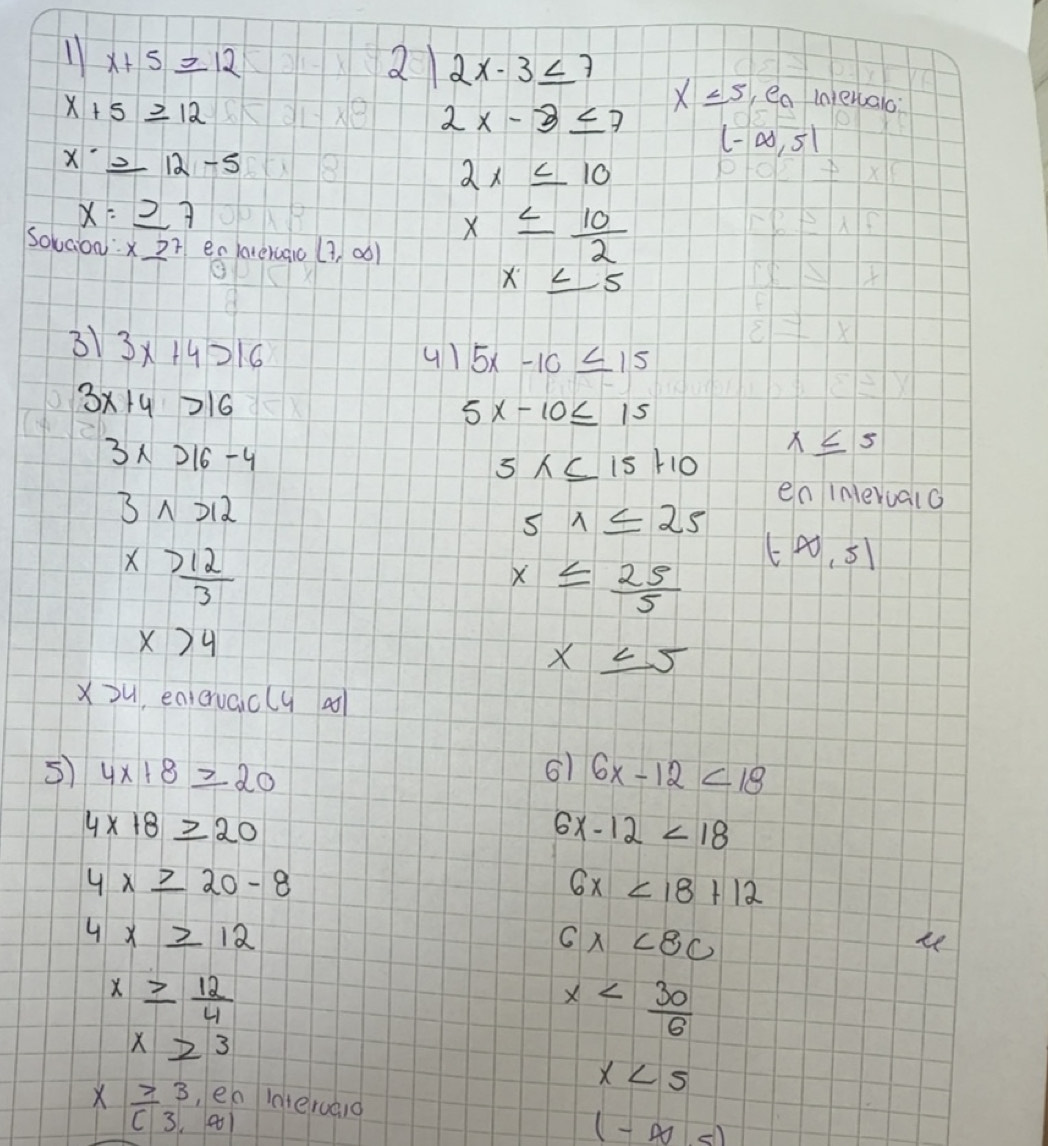 1) x+5 ≥ 12
x+5 ≥ 12
x ≥ 12-5
x = ≥ 7
Solucion: x ≥7 en intervalo [7, ∞)
2) 2x-3 ≤ 7
2x-3 ≤ 7
2x ≤ 10
x ≤ 10/2
x ≤ 5
x ≤5, en intervalo:
(-∞, 5]
3) 3x+4 >16
3x+4 >16
3x >16-4
3x >12
x > 12/3
x >4
x >4, (4 ∞)
4) 5x-10 ≤ 15
5x-10 ≤ 15
5x ≤ 15+10
5x ≤ 25
x ≤ 25/5
x ≤ 5
x ≤ 5
en intervalo
(-∞, 5]
5) 4x+8 ≥ 20
4x+8 ≥ 20
4x ≥ 20-8
4x ≥ 12
x ≥ 12/4
x ≥ 3
x ≥ 3, en intervalo
[3, ∞)
6) 6x-12 < 18
6x-12 < 18
6x < 18+12
6x < 30
x < 30/6
x < 5
(-∞, 5)